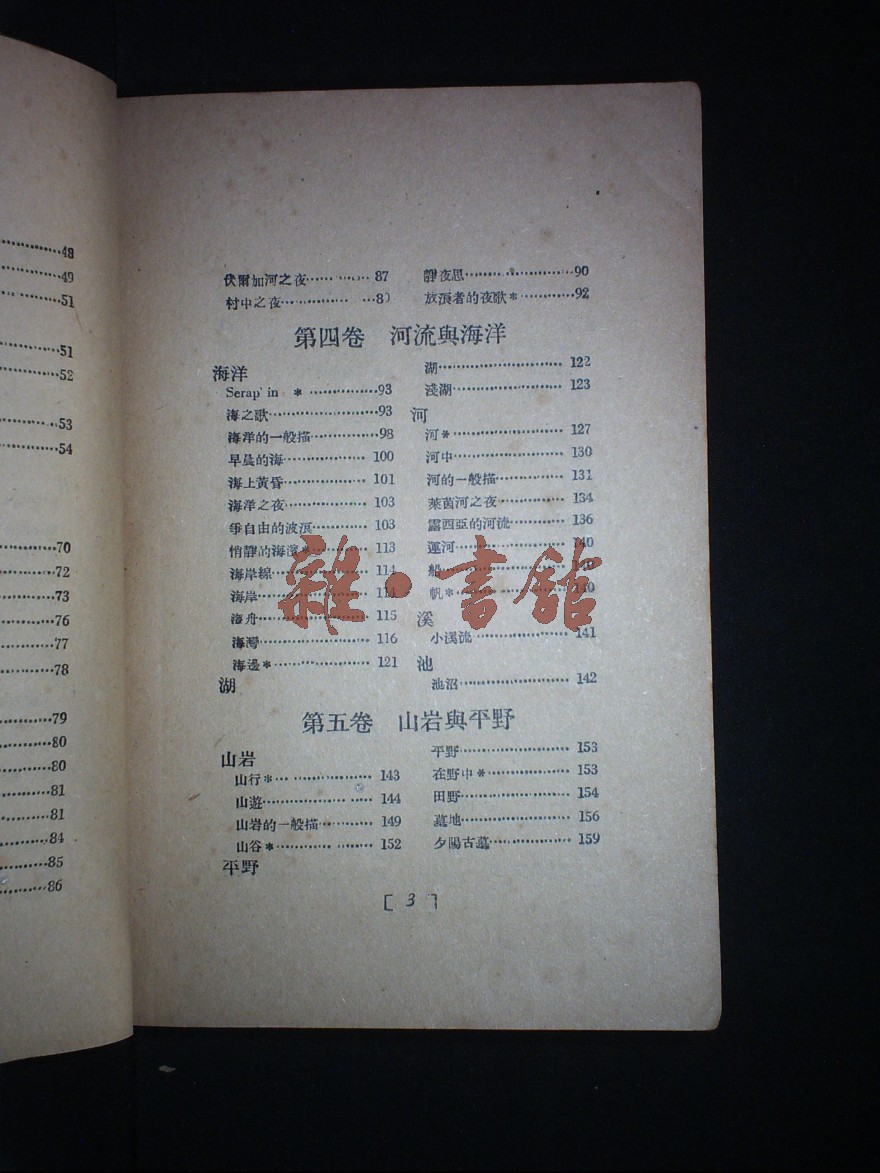 48
49
51
51
52
53
54
70
72
73
76
77
78
79
80
80
81
81
84
85
86
伏爾加河之夜 87
村中之夜 8
靜夜思 90
放浪者的夜歌* 92
第四卷 河流與海洋
海洋
Serap'in * 93
海之歌 93
海洋的一般描 98
早晨的海 100
海上黃昏 101
海洋之夜 103
爭自由的波浪 103
悄靜的海濱* 113
海岸線 114
海岸 114
海舟 115
海灣 116
海邊* 121
湖
湖 122
淺湖 123
河
河* 127
河中 130
河的一般描 131
萊茵河之夜 134
露西亞的河流 136
運河 140
船 140
帆* 140
溪
小溪流 141
池
池沼 142
第五卷 山岩與平野
山岩
山行* 143
山遊 144
山岩的一般描 149
山谷* 152
平野
平野 153
在野中* 153
田野 154
墓地 156
夕陽古墓 159
[3]
雜·書舘